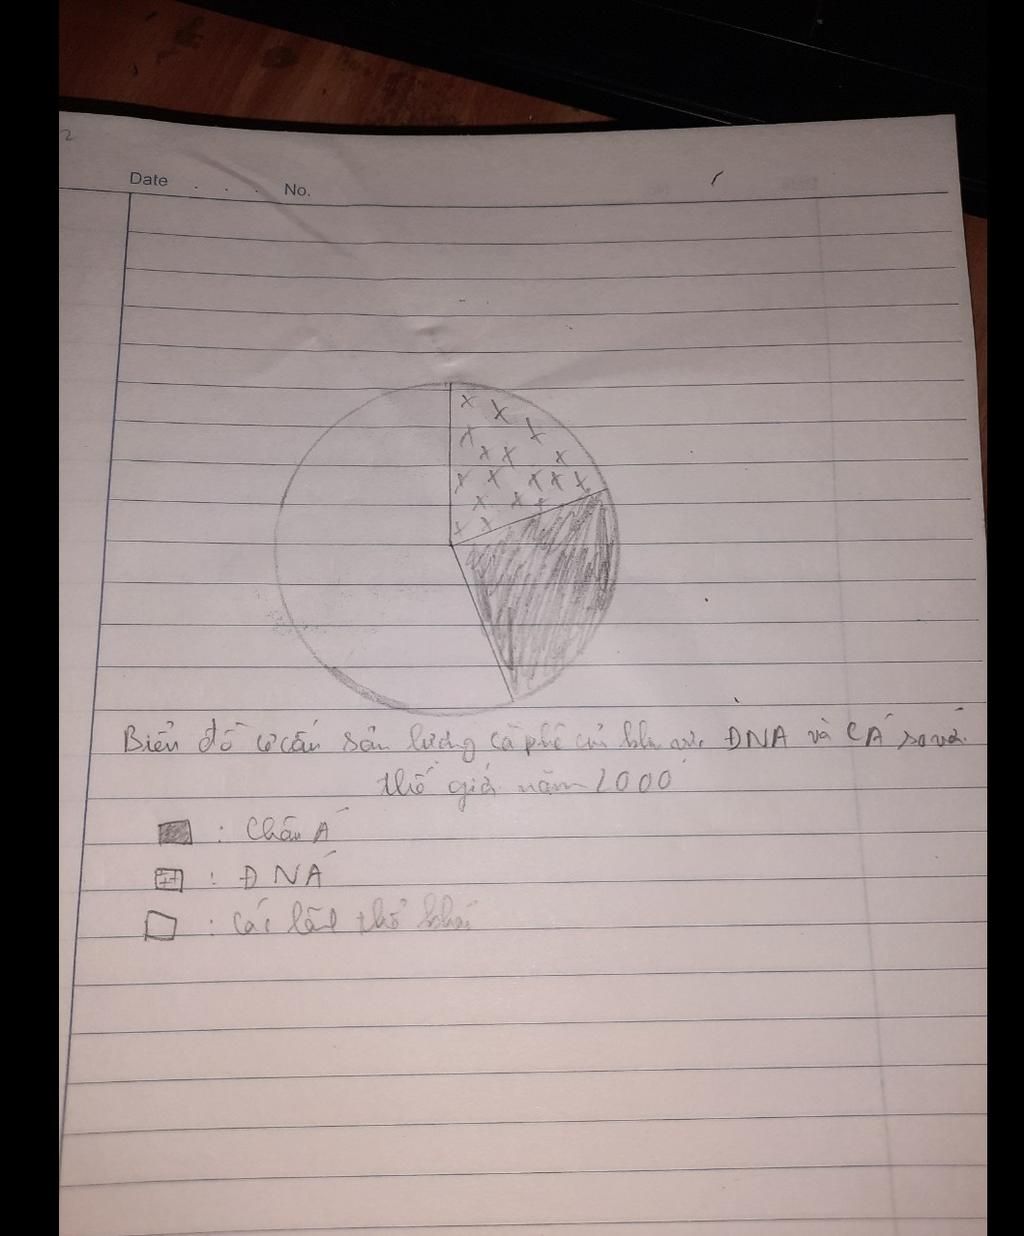 2
Date . . . No.
Biểu đồ cơ cấu sản lượng cà phê của khu vực ĐNA và CÁ so với
thế giới năm 2000
: Châu Á
: ĐNÁ
: Các lãnh thổ khác